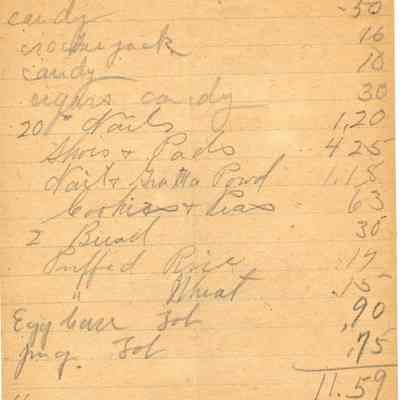 candy .50
crackerjack 10
candy 10
cigars candy 30
20# Nails 1,20
Shoes + Pads 4 25
Nails + Powd 1,15
Cookies + Peas 63
2 Bread 30
Puffed Rice .17
" Wheat .15
Egg case Tob ,90
Tob ,75
11.59